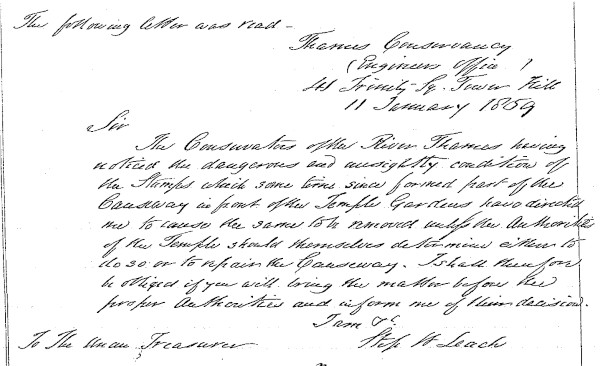 The following letter was read –
Thames Conservancy
(Engineers Office)
41 Trinity Sq. Tower Hill
11 January 1859
Sir
The Conservators of the River Thames having
noticed the dangerous and unsightly condition of
the Stumps which some time since formed part of the
Causeway in front of the Temple Gardens have directed
me to cause the same to be removed unless the Authorities
of the Temple should themselves determine either to
do so or to repair the Causeway. I shall therefore
be obliged if you will bring the matter before the
proper Authorities and inform me of their decision.
I am &c
To The Treasurer
Step W. Leach